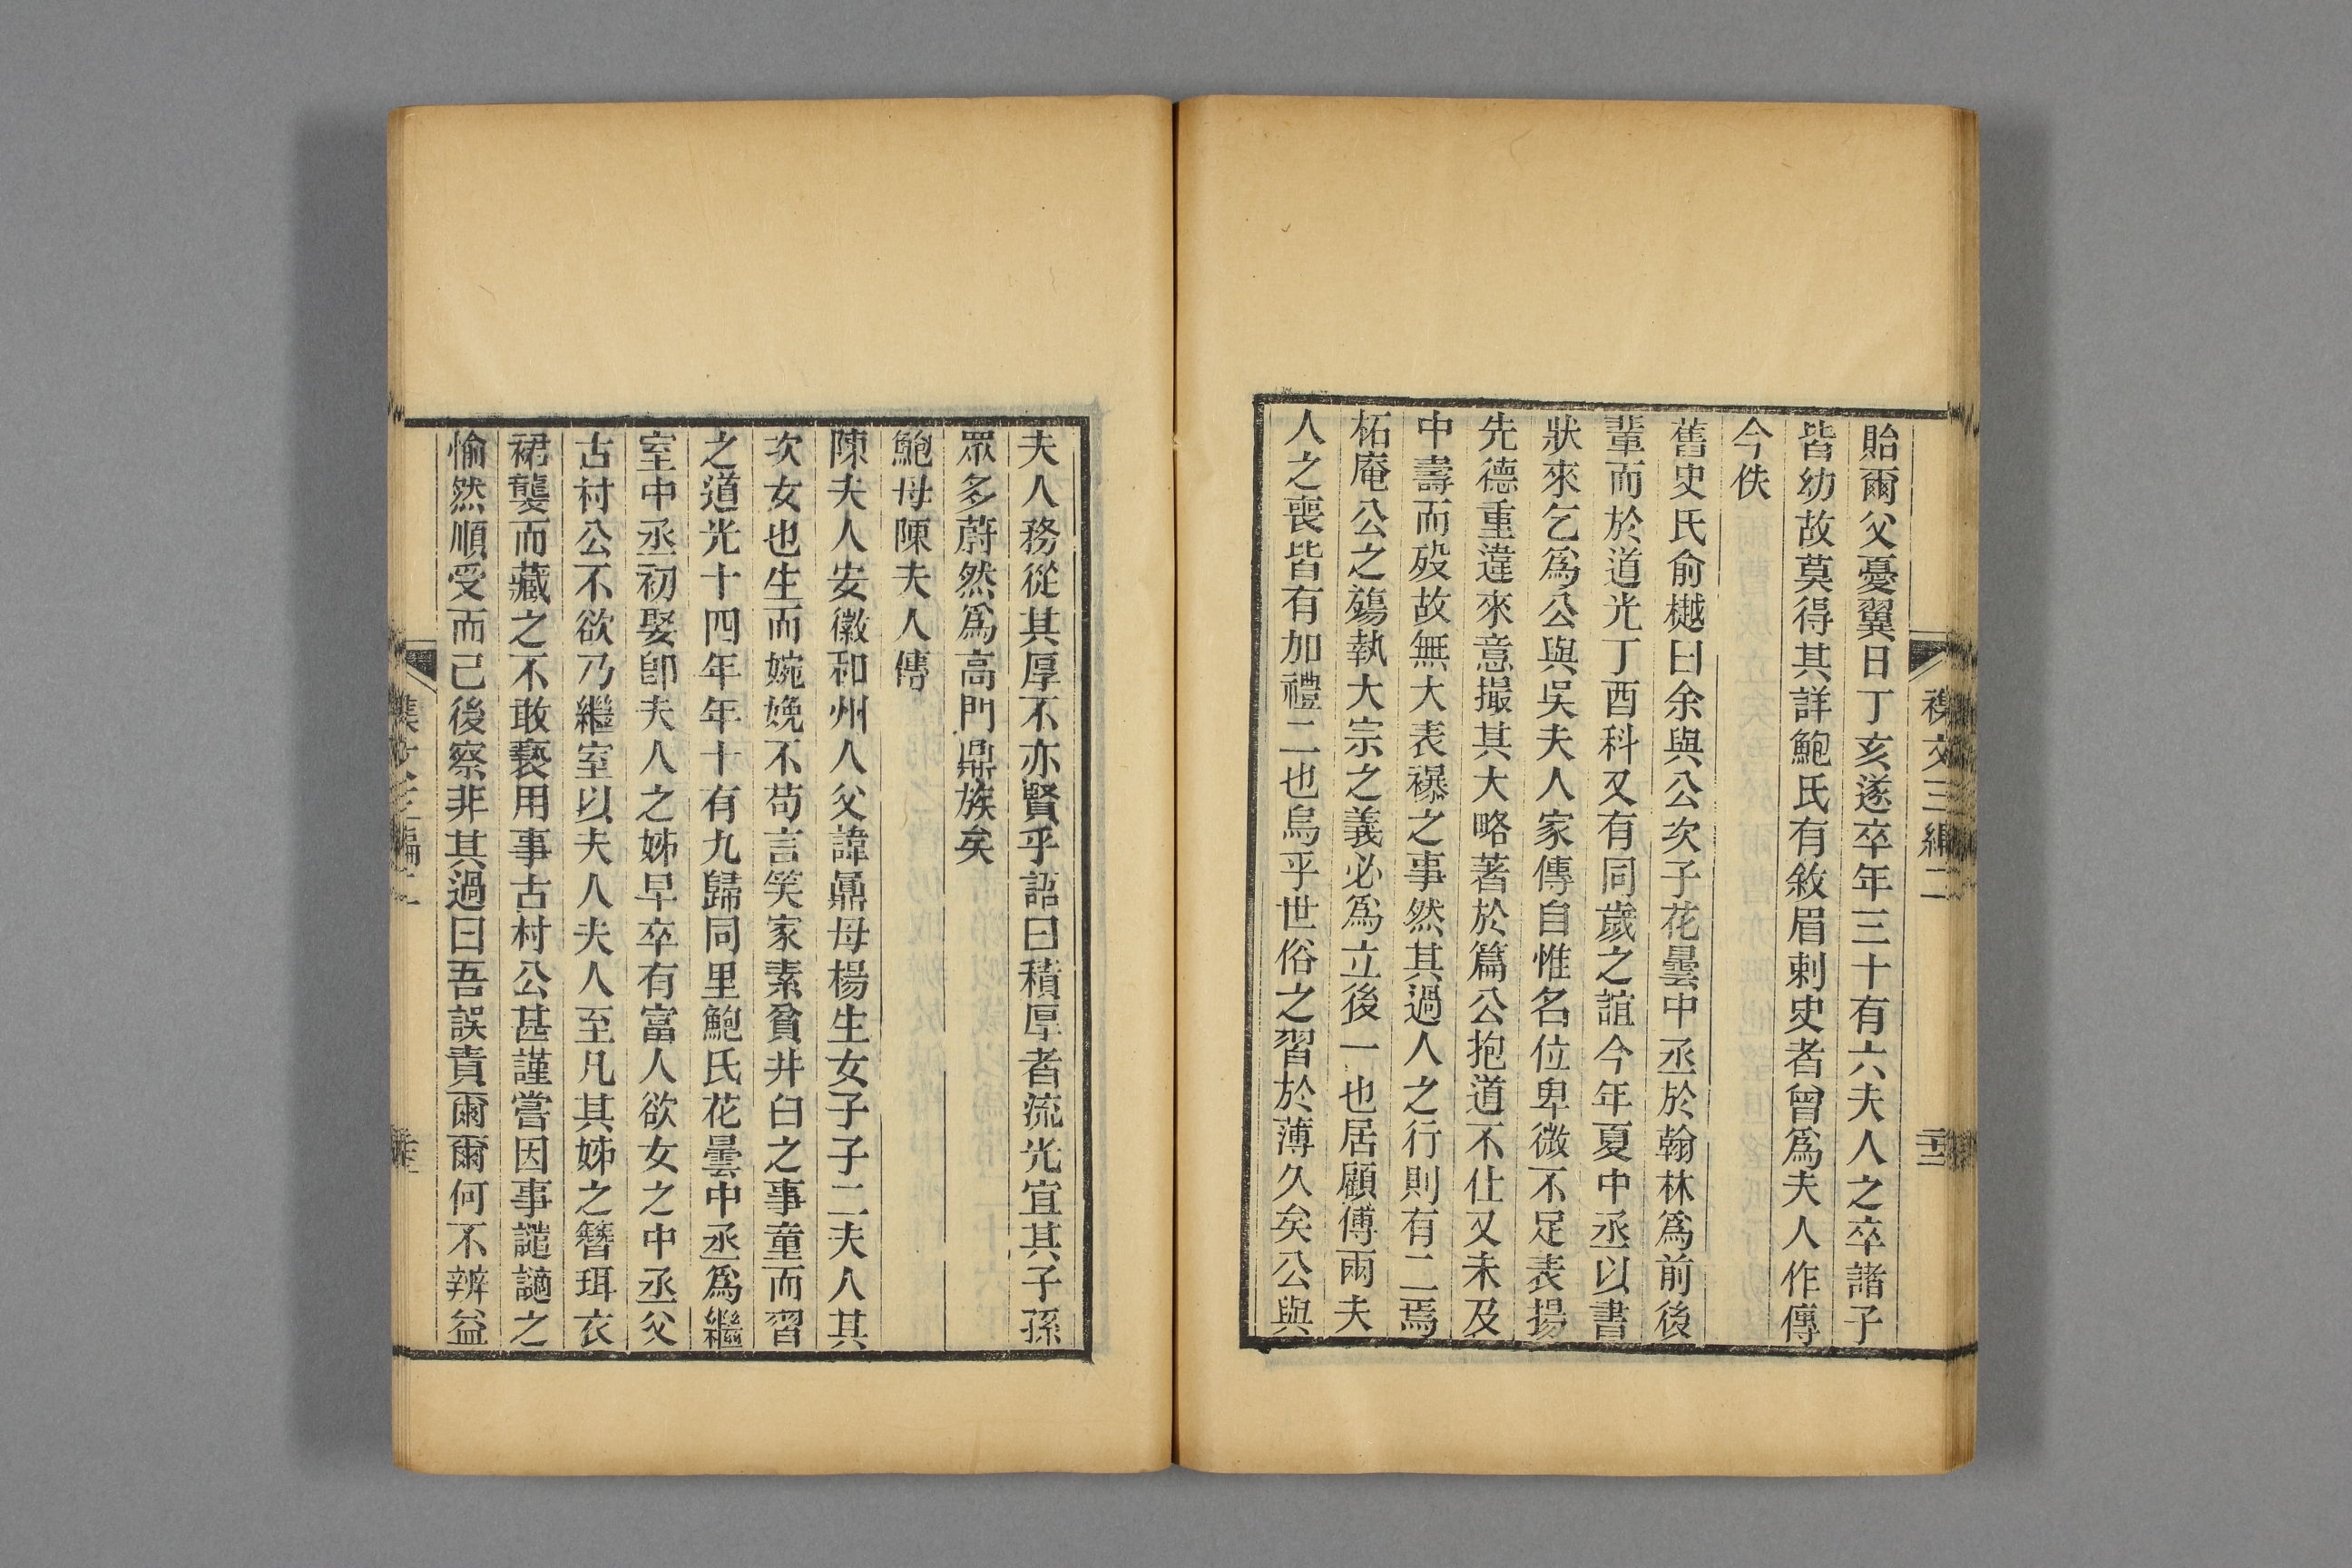 貽爾父憂翼日丁亥遂卒年三十有六夫人之卒諸子
皆幼故莫得其詳鮑氏有敘眉刺史者曾爲夫人作傳
今佚
舊史氏俞樾曰余與公次子花曇中丞於翰林爲前後
輩而於道光丁酉科又有同歲之誼今年夏中丞以書
狀來乞爲公與吳夫人家傳自惟名位卑微不足表揚
先德重違來意撮其大略著於篇公抱道不仕又未及
中壽而歿故無大表襮之事然其過人之行則有二焉
柘庵公之殤執大宗之義必爲立後一也居顧傅兩夫
人之喪皆有加禮二也烏乎世俗之習於薄久矣公與
夫人務從其厚不亦賢乎語曰積厚者流光宜其子孫
眾多蔚然爲高門鼎族矣
鮑母陳夫人傳
陳夫人安徽和州人父諱鼏母楊生女子子二夫人其
次女也生而婉娩不苟言笑家素貧井臼之事童而習
之道光十四年年十有九歸同里鮑氏花曇中丞爲繼
室中丞初娶卽夫人之姊早卒有富人欲女之中丞父
古村公不欲乃繼室以夫人夫人至凡其姊之簪珥衣
裙襲而藏之不敢褻用事古村公甚謹嘗因事譴謫之
愉然順受而已後察非其過曰吾誤責爾爾何不辨益